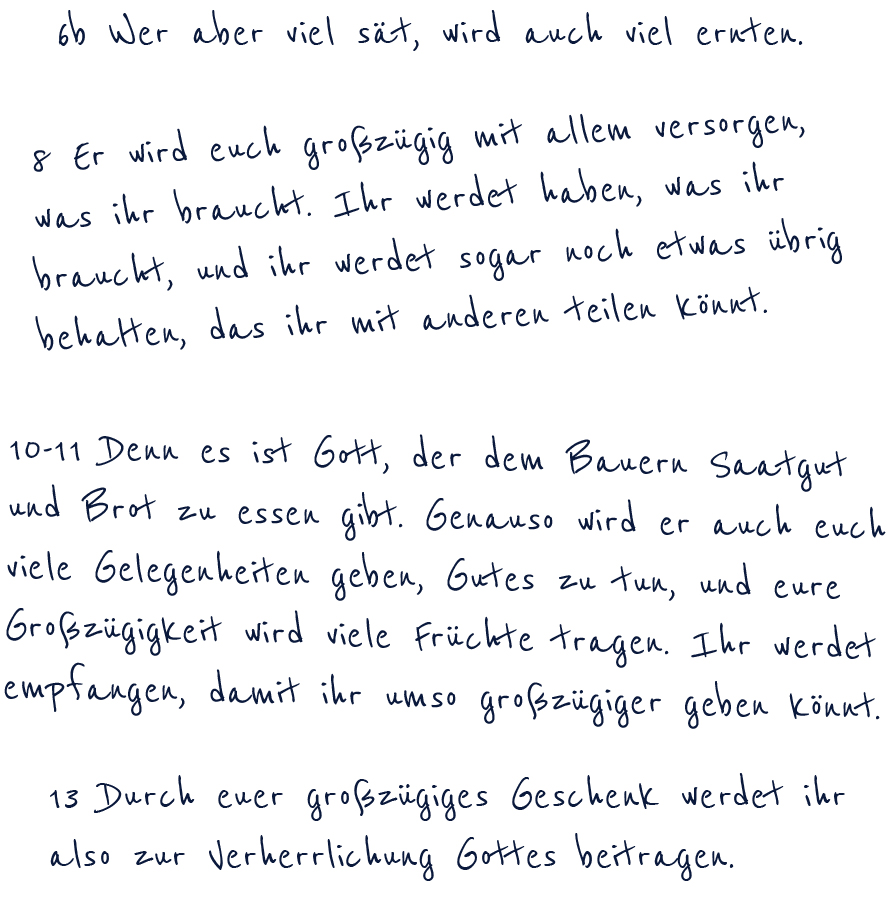 6b Wer aber viel sät, wird auch viel ernten.
8 Er wird euch großzügig mit allem versorgen,
was ihr braucht. Ihr werdet haben, was ihr
braucht, und ihr werdet sogar noch etwas übrig
behalten, das ihr mit anderen teilen könnt.
10-11 Denn es ist Gott, der dem Bauern Saatgut
und Brot zu essen gibt. Genauso wird er auch euch
viele Gelegenheiten geben, Gutes zu tun, und eure
Großzügigkeit wird viele Früchte tragen. Ihr werdet
empfangen, damit ihr umso großzügiger geben könnt.
13 Durch euer großzügiges Geschenk werdet ihr
also zur Verherrlichung Gottes beitragen.